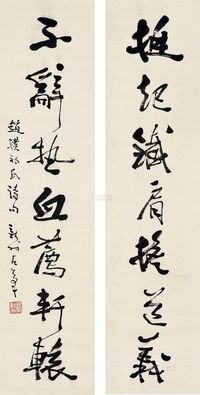 挺起鐵肩擔道義
不辭熱血薦軒轅
趙樸初氏詩句